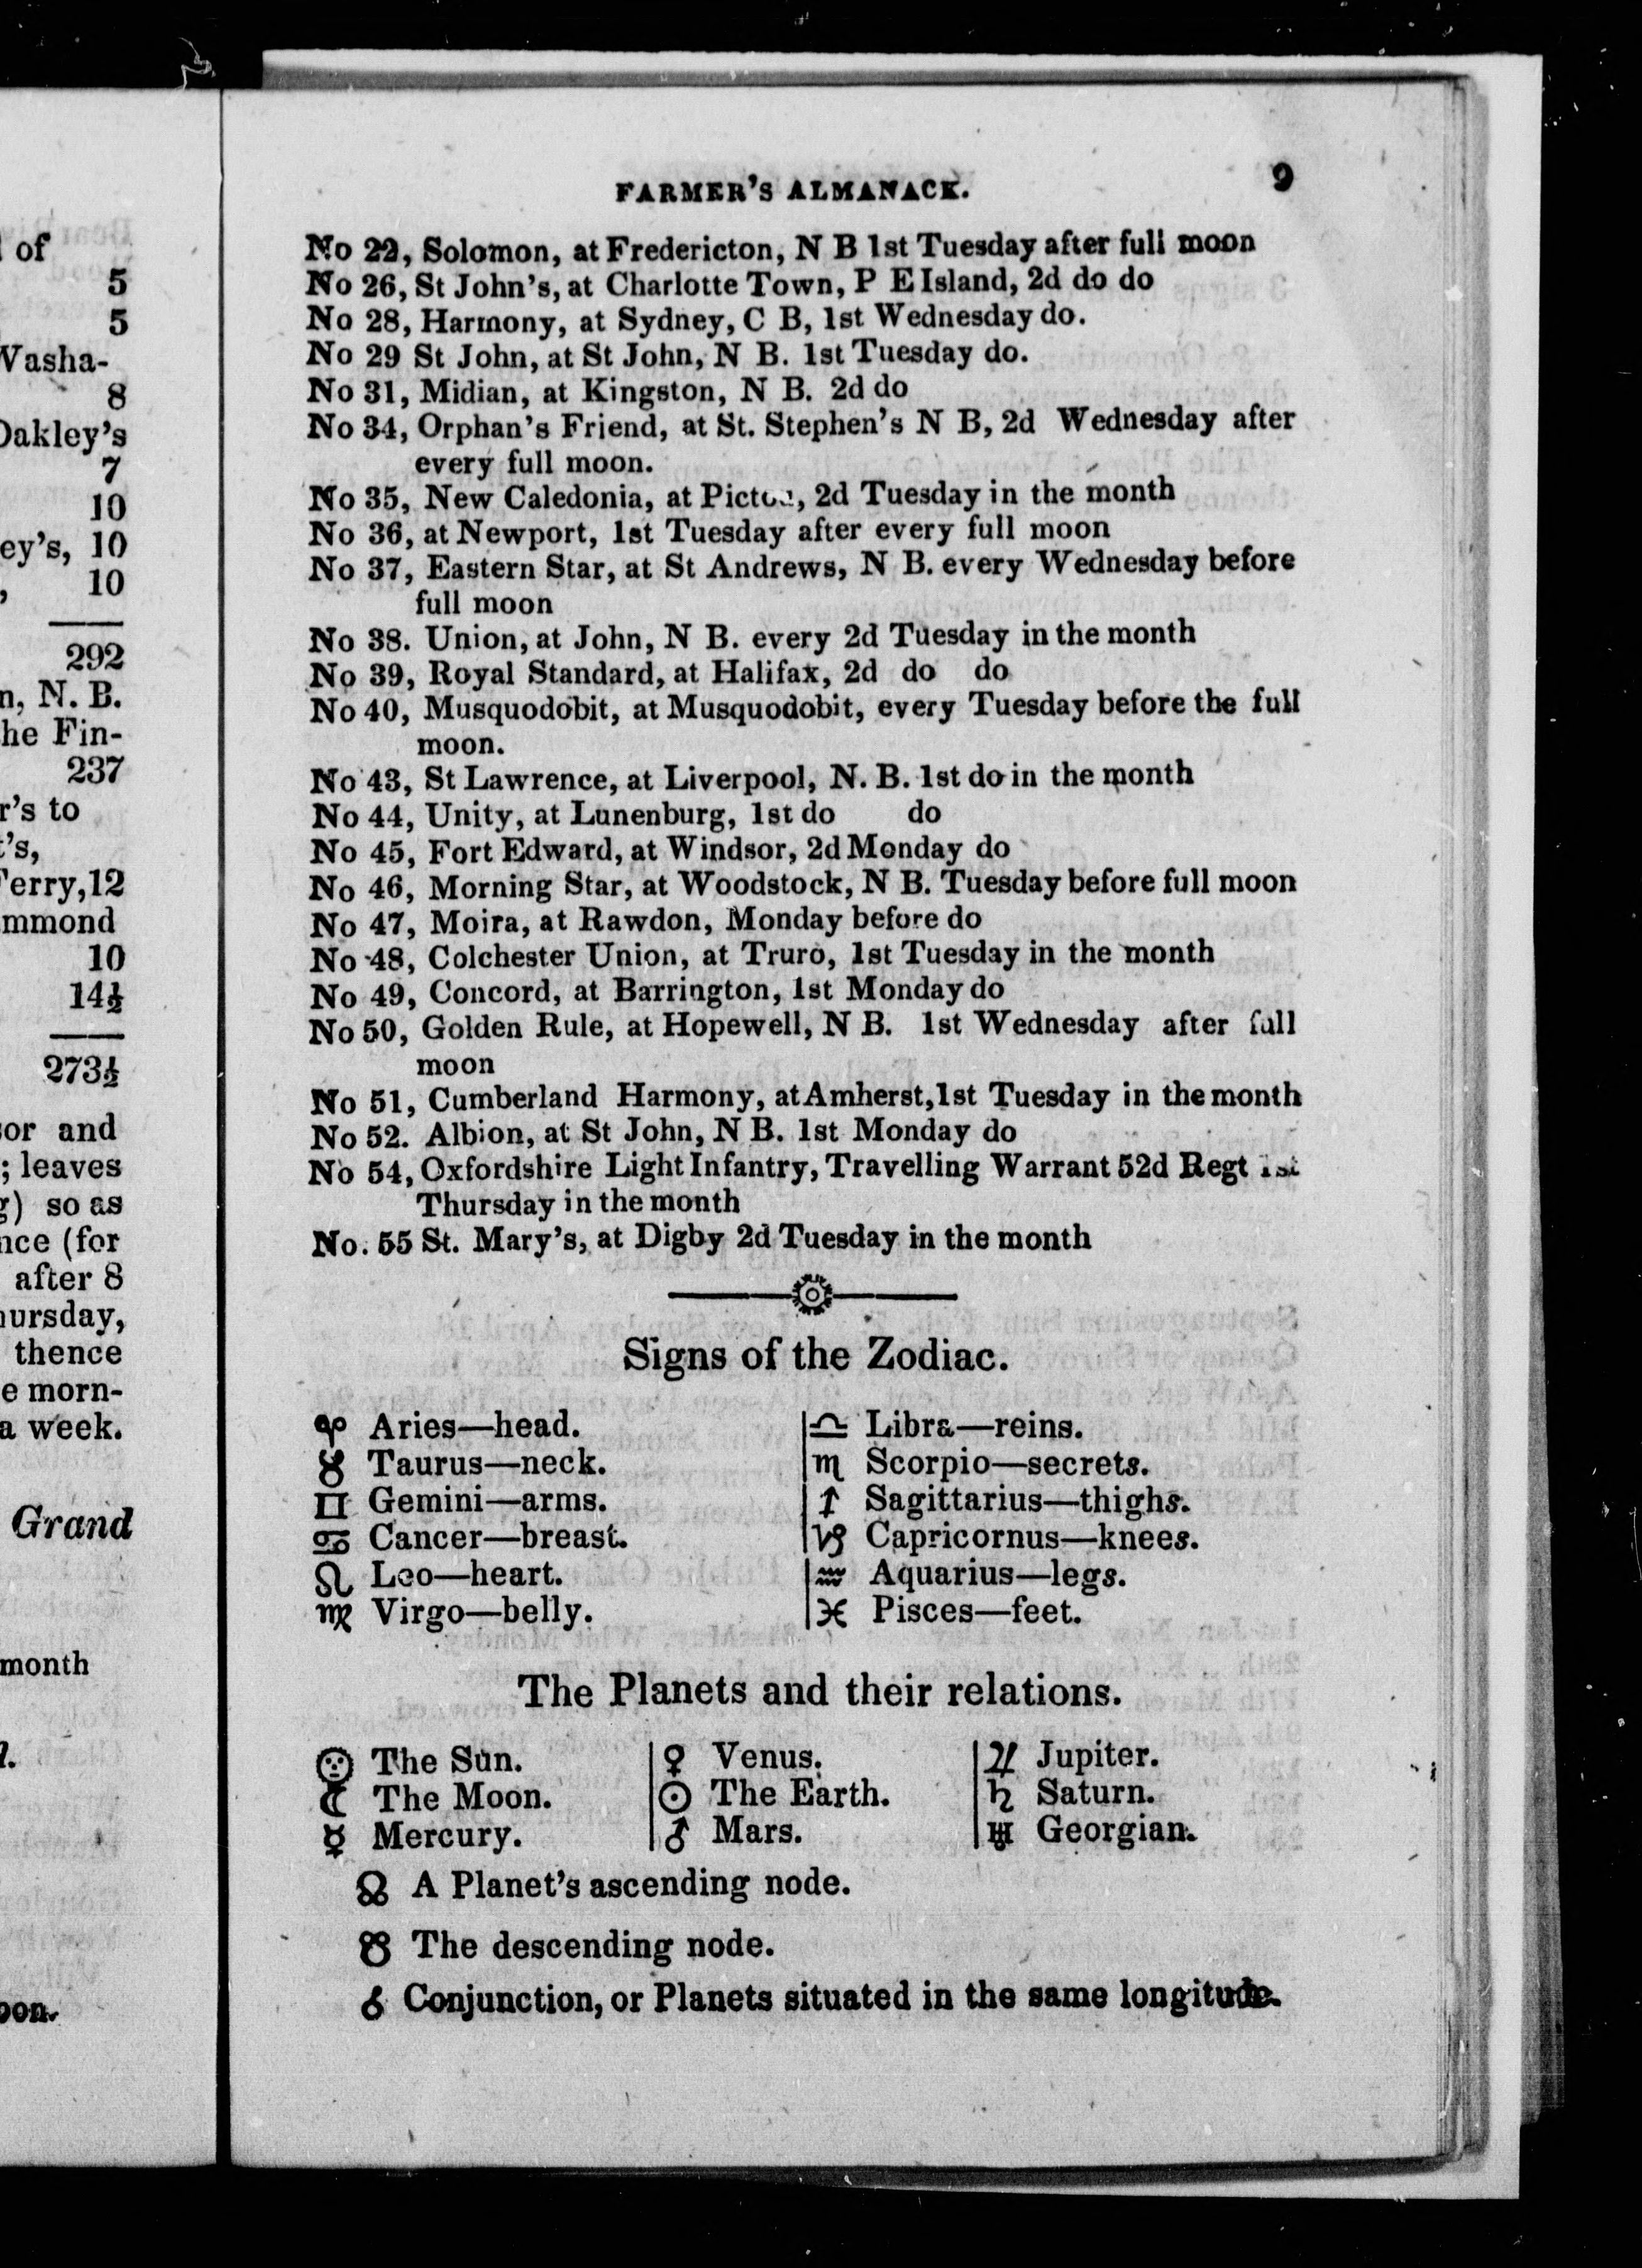 of
5
5
Washa-
8
Oakley's
7
10
ey's, 10
, 10
292
n, N. B.
he Fin-
237
r's to
t's,
Ferry, 12
mmond
10
14½
273½
or and
; leaves
g) so as
nce (for
after 8
hursday,
thence
e morn-
a week.
Grand
month
oon.
FARMER'S ALMANACK. 9
No 22, Solomon, at Fredericton, N B 1st Tuesday after full moon
No 26, St John's, at Charlotte Town, P E Island, 2d do do
No 28, Harmony, at Sydney, C B, 1st Wednesday do.
No 29 St John, at St John, N B. 1st Tuesday do.
No 31, Midian, at Kingston, N B. 2d do
No 34, Orphan's Friend, at St. Stephen's N B, 2d Wednesday after
every full moon.
No 35, New Caledonia, at Pictou, 2d Tuesday in the month
No 36, at Newport, 1st Tuesday after every full moon
No 37, Eastern Star, at St Andrews, N B. every Wednesday before
full moon
No 38. Union, at John, N B. every 2d Tuesday in the month
No 39, Royal Standard, at Halifax, 2d do do
No 40, Musquodobit, at Musquodobit, every Tuesday before the full
moon.
No 43, St Lawrence, at Liverpool, N. B. 1st do in the month
No 44, Unity, at Lunenburg, 1st do do
No 45, Fort Edward, at Windsor, 2d Monday do
No 46, Morning Star, at Woodstock, N B. Tuesday before full moon
No 47, Moira, at Rawdon, Monday before do
No 48, Colchester Union, at Truro, 1st Tuesday in the month
No 49, Concord, at Barrington, 1st Monday do
No 50, Golden Rule, at Hopewell, N B. 1st Wednesday after full
moon
No 51, Cumberland Harmony, at Amherst, 1st Tuesday in the month
No 52. Albion, at St John, N B. 1st Monday do
No 54, Oxfordshire Light Infantry, Travelling Warrant 52d Regt 1st
Thursday in the month
No. 55 St. Mary's, at Digby 2d Tuesday in the month
Signs of the Zodiac.
♈ Aries—head.
♉ Taurus—neck.
♊ Gemini—arms.
♋ Cancer—breast.
♌ Leo—heart.
♍ Virgo—belly.
♎ Libra—reins.
♏ Scorpio—secrets.
♐ Sagittarius—thighs.
♑ Capricornus—knees.
♒ Aquarius—legs.
♓ Pisces—feet.
The Planets and their relations.
☉ The Sun.
☾ The Moon.
☿ Mercury.
♀ Venus.
⊙ The Earth.
♂ Mars.
♃ Jupiter.
♄ Saturn.
♅ Georgian.
☊ A Planet's ascending node.
☋ The descending node.
☌ Conjunction, or Planets situated in the same longitude.